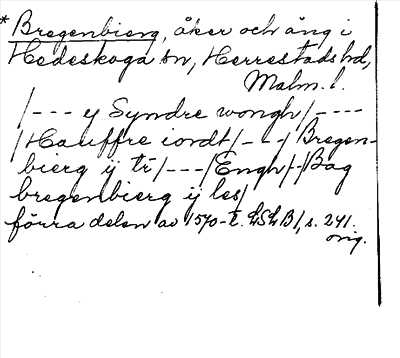 * Bregenbierg, åker och äng i
Hedeskoga sn, Herrestads hd,
Malm. l.
/--- y Syndre wongh/----
/Hauffre iordt/---/Bregen-
bierg ij tr/---/Engh/--/Bag
bregenbierg ij les/
förra delen av 1570-t. LSLB I, s. 241.
orig.